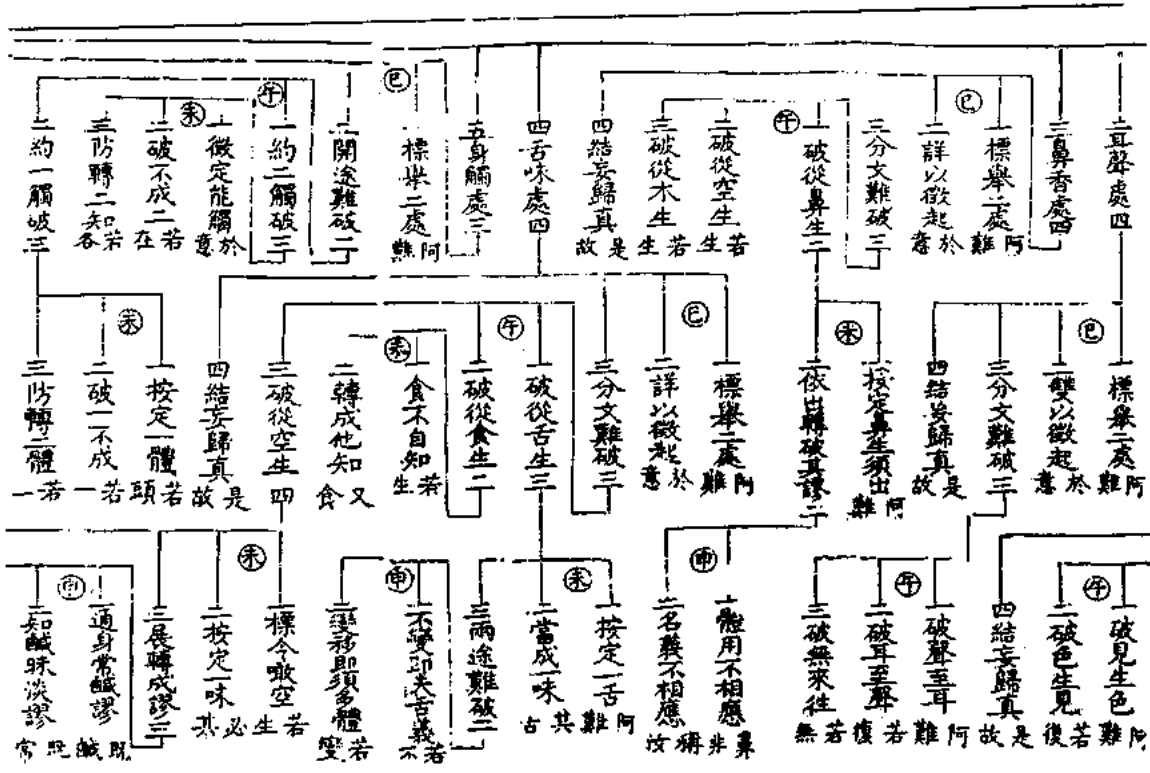 二耳聲處四
三鼻香處四
巳
一標舉二處阿難
二詳以徵起於意
三分文難破三
午
一破從鼻生二
二破從空生若生
三破從木生若生
四結妄歸真是故
四舌味處四
五身觸處三
巳
一標舉二處阿難
二開途難破二
午
一約二觸破三
未
一徵定能觸於意
二破不成二若在
三防轉二知若各
二約一觸破三
巳
一標舉二處阿難
二雙以徵起於意
三分文難破三
四結妄歸真是故
未
一按定鼻生須出阿難
二依出轉破其謬二
巳
一標舉二處阿難
二詳以徵起於意
三分文難破三
午
一破從舌生三
二破從食生二
未
一食不自知若生
二轉成他知又食
三破從空生四
四結妄歸真是故
未
一按定一體若頭
二破一不成若一
三防轉二體若一
午
一破見生色阿難
二破色生見若復
四結妄歸真是故
午
一破聲至耳阿難
二破耳至聲若復
三破無來往若無
申
一體用不相應鼻非
二名義不相應稱汝
未
一按定一舌阿難
二當成一味其舌
三兩途難破二
申
一不變即失舌義若不
二變移即須多體若變
未
一標今噉空若生
二按定一味必其
三展轉成謬三
申
一適身常鹹謬既鹹
二知鹹昧淡謬既常